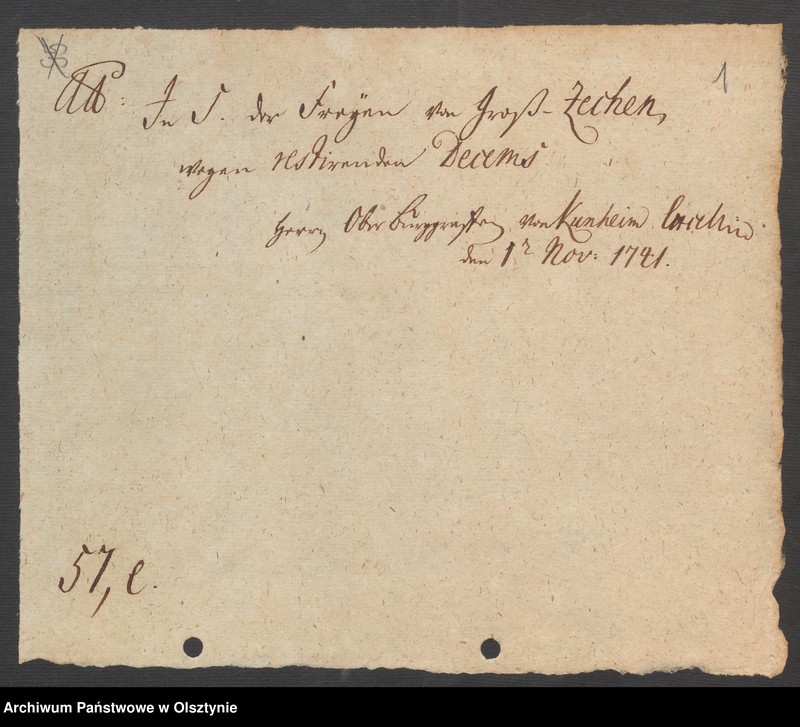 1
In S. der Freÿen von Groß-Zechen,
wegen restirenden Decems
Herrn Ober Burggraffen von Kunheim
den 1t Nov: 1741.
57, e.
Archiwum Państwowe w Olsztynie